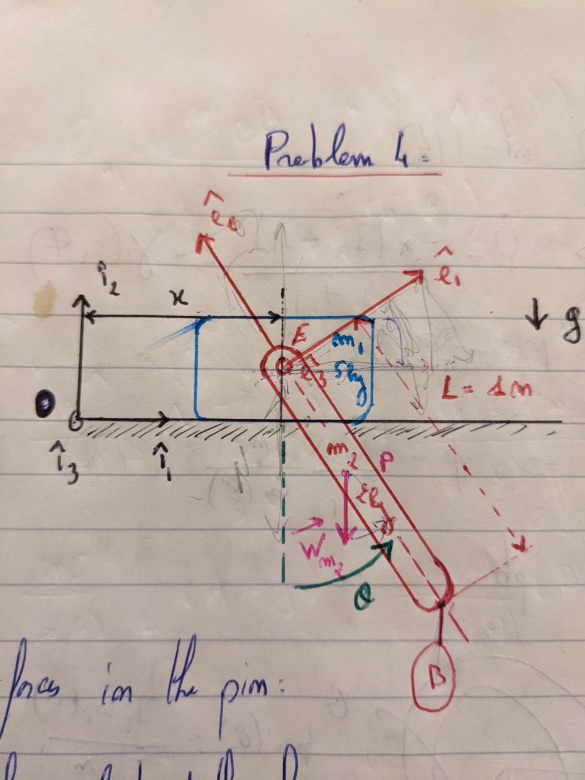 Problem 4 =
ê₂
ê₁
î₂
x
g
E
m₁
5kg
ê₃
L = 1m
O
î₃
î₁
m₂
P
2kg
W m₂
θ
B
forces in the pin: